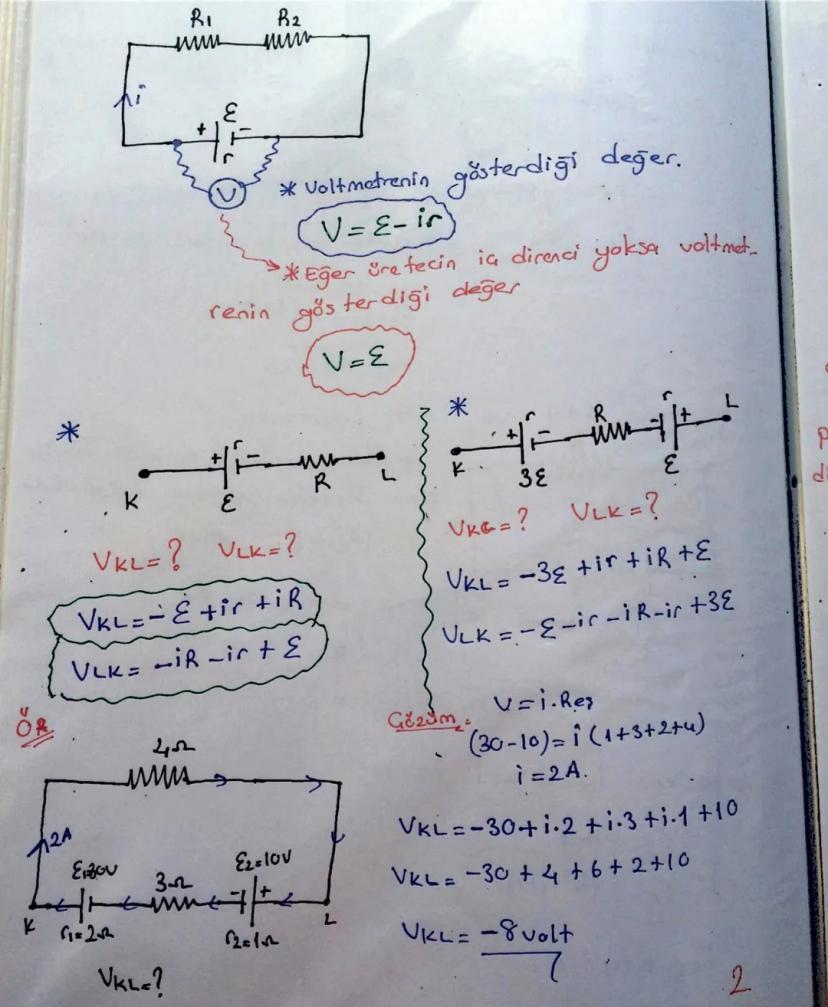 R1 R2
i
+ ε -
r
V
* Voltmetrenin gösterdiği değer.
V = ε - ir
* Eğer üretecin iç direnci yoksa voltmet-
renin gösterdiği değer
V = ε
*
K + r - R L
ε
VKL = ? VLK = ?
VKL = - ε + ir + iR
VLK = - iR - ir + ε
*
K + r - R - r + L
3ε ε
VKL = ? VLK = ?
VKL = -3ε + ir + iR + ε
VLK = -ε - ir - iR - ir + 3ε
ÖR
4Ω
2A
ε1=30V 3Ω ε2=10V
- +
K r1=2Ω r2=1Ω L
VKL = ?
Çözüm:
V = i.Reş
(30-10) = i (1+3+2+4)
i = 2A.
VKL = -30 + i.2 + i.3 + i.1 + 10
VKL = -30 + 4 + 6 + 2 + 10
VKL = -8 volt
2